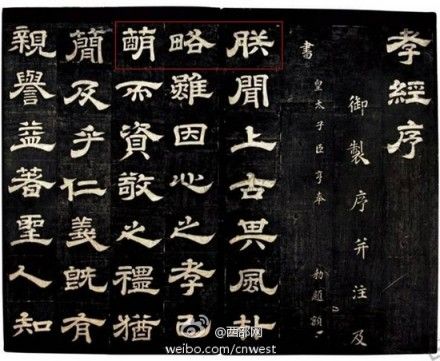 孝經序
御製序并注及
書
皇太子臣亨奉 勅題額
朕聞上古其風朴
略雖因心之孝已
萌而資敬之禮猶
簡及乎仁義既有
親譽益著聖人知
@西部网
weibo.com/cnwest